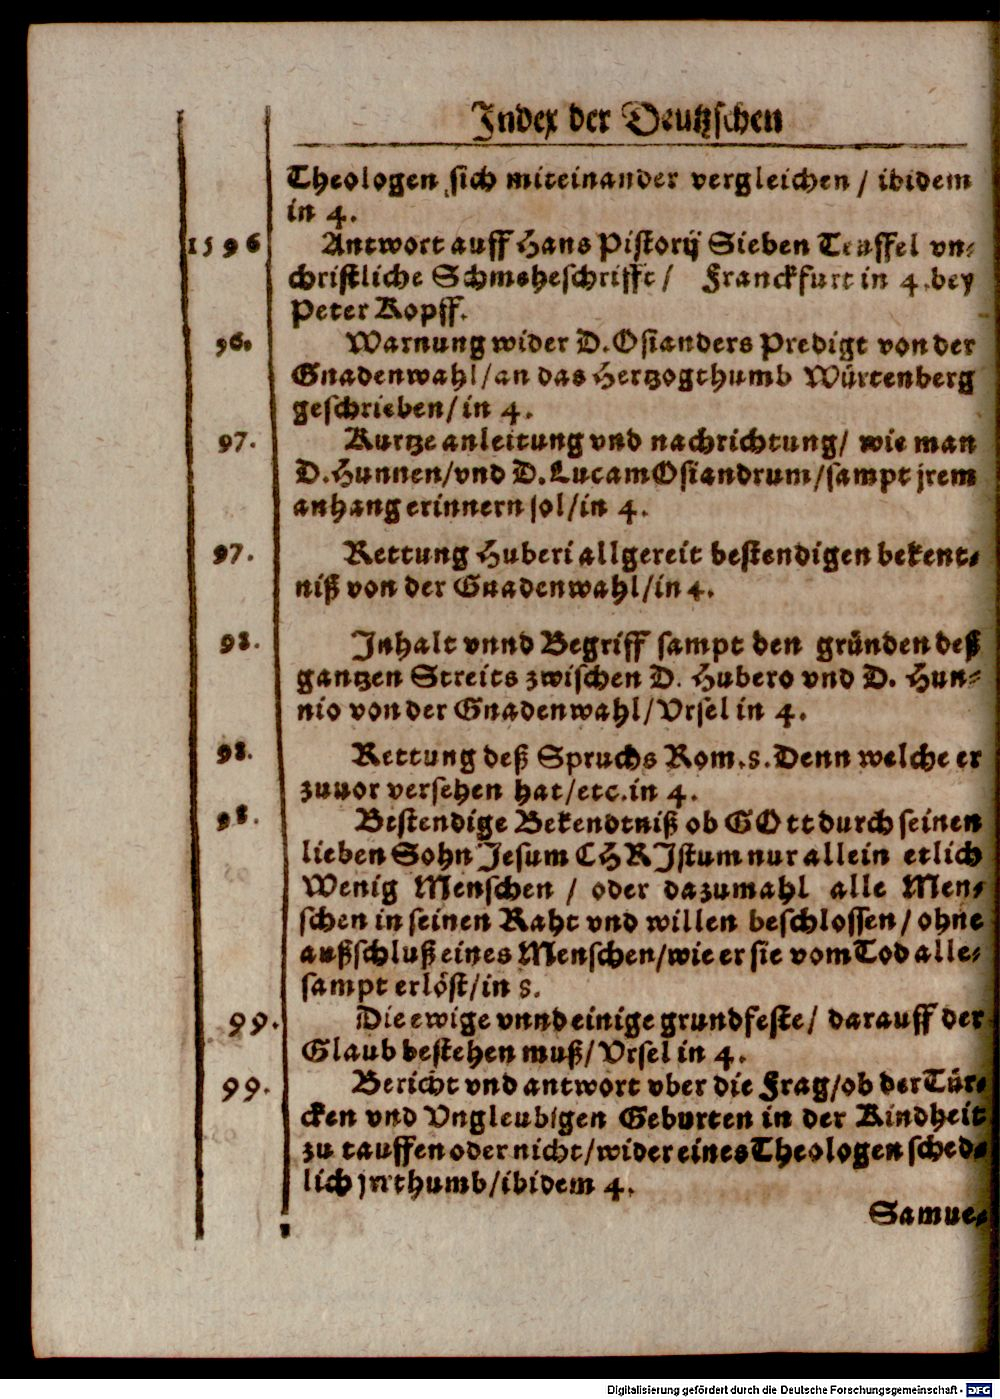 Index der Deutzschen
Theologen sich miteinander vergleichen / ibidem
in 4.
1596 Antwort auff Hans Pistorij Sieben Teuffel vn-
christliche Schmeheschrifft / Franckfurt in 4. bey
Peter Kopff.
96. Warnung wider D. Osianders Predigt von der
Gnadenwahl / an das Hertzogthumb Würtenberg
geschrieben / in 4.
97. Kurtze anleitung vnd nachrichtung / wie man
D. Hunnen / vnd D. Lucam Osiandrum / sampt jrem
anhang erinnern sol / in 4.
97. Rettung Huberi allgereit bestendigen bekent-
niß von der Gnadenwahl / in 4.
98. Inhalt vnnd Begriff sampt den gründen deß
gantzen Streits zwischen D. Hubero vnd D. Hun-
nio von der Gnadenwahl / Vrsel in 4.
98. Rettung deß Spruchs Rom. 8. Denn welche er
zuuor versehen hat / etc. in 4.
98. Bestendige Bekendtniß ob GOtt durch seinen
lieben Sohn Jesum CHRIstum nur allein etlich
Wenig Menschen / oder dazumahl alle Men-
schen in seinen Raht vnd willen beschlossen / ohne
außschluß eines Menschen / wie er sie vom Tod alle-
sampt erlöst / in 8.
99. Die ewige vnnd einige grundfeste / darauff der
Glaub bestehen muß / Vrsel in 4.
99. Bericht vnd antwort vber die Frag / ob der Tür-
cken vnd Vngleubigen Geburten in der Kindheit
zu tauffen oder nicht / wider eines Theologen sched-
lich jrrthumb / ibidem 4.
Samue-
Digitalisierung gefördert durch die Deutsche Forschungsgemeinschaft - DFG